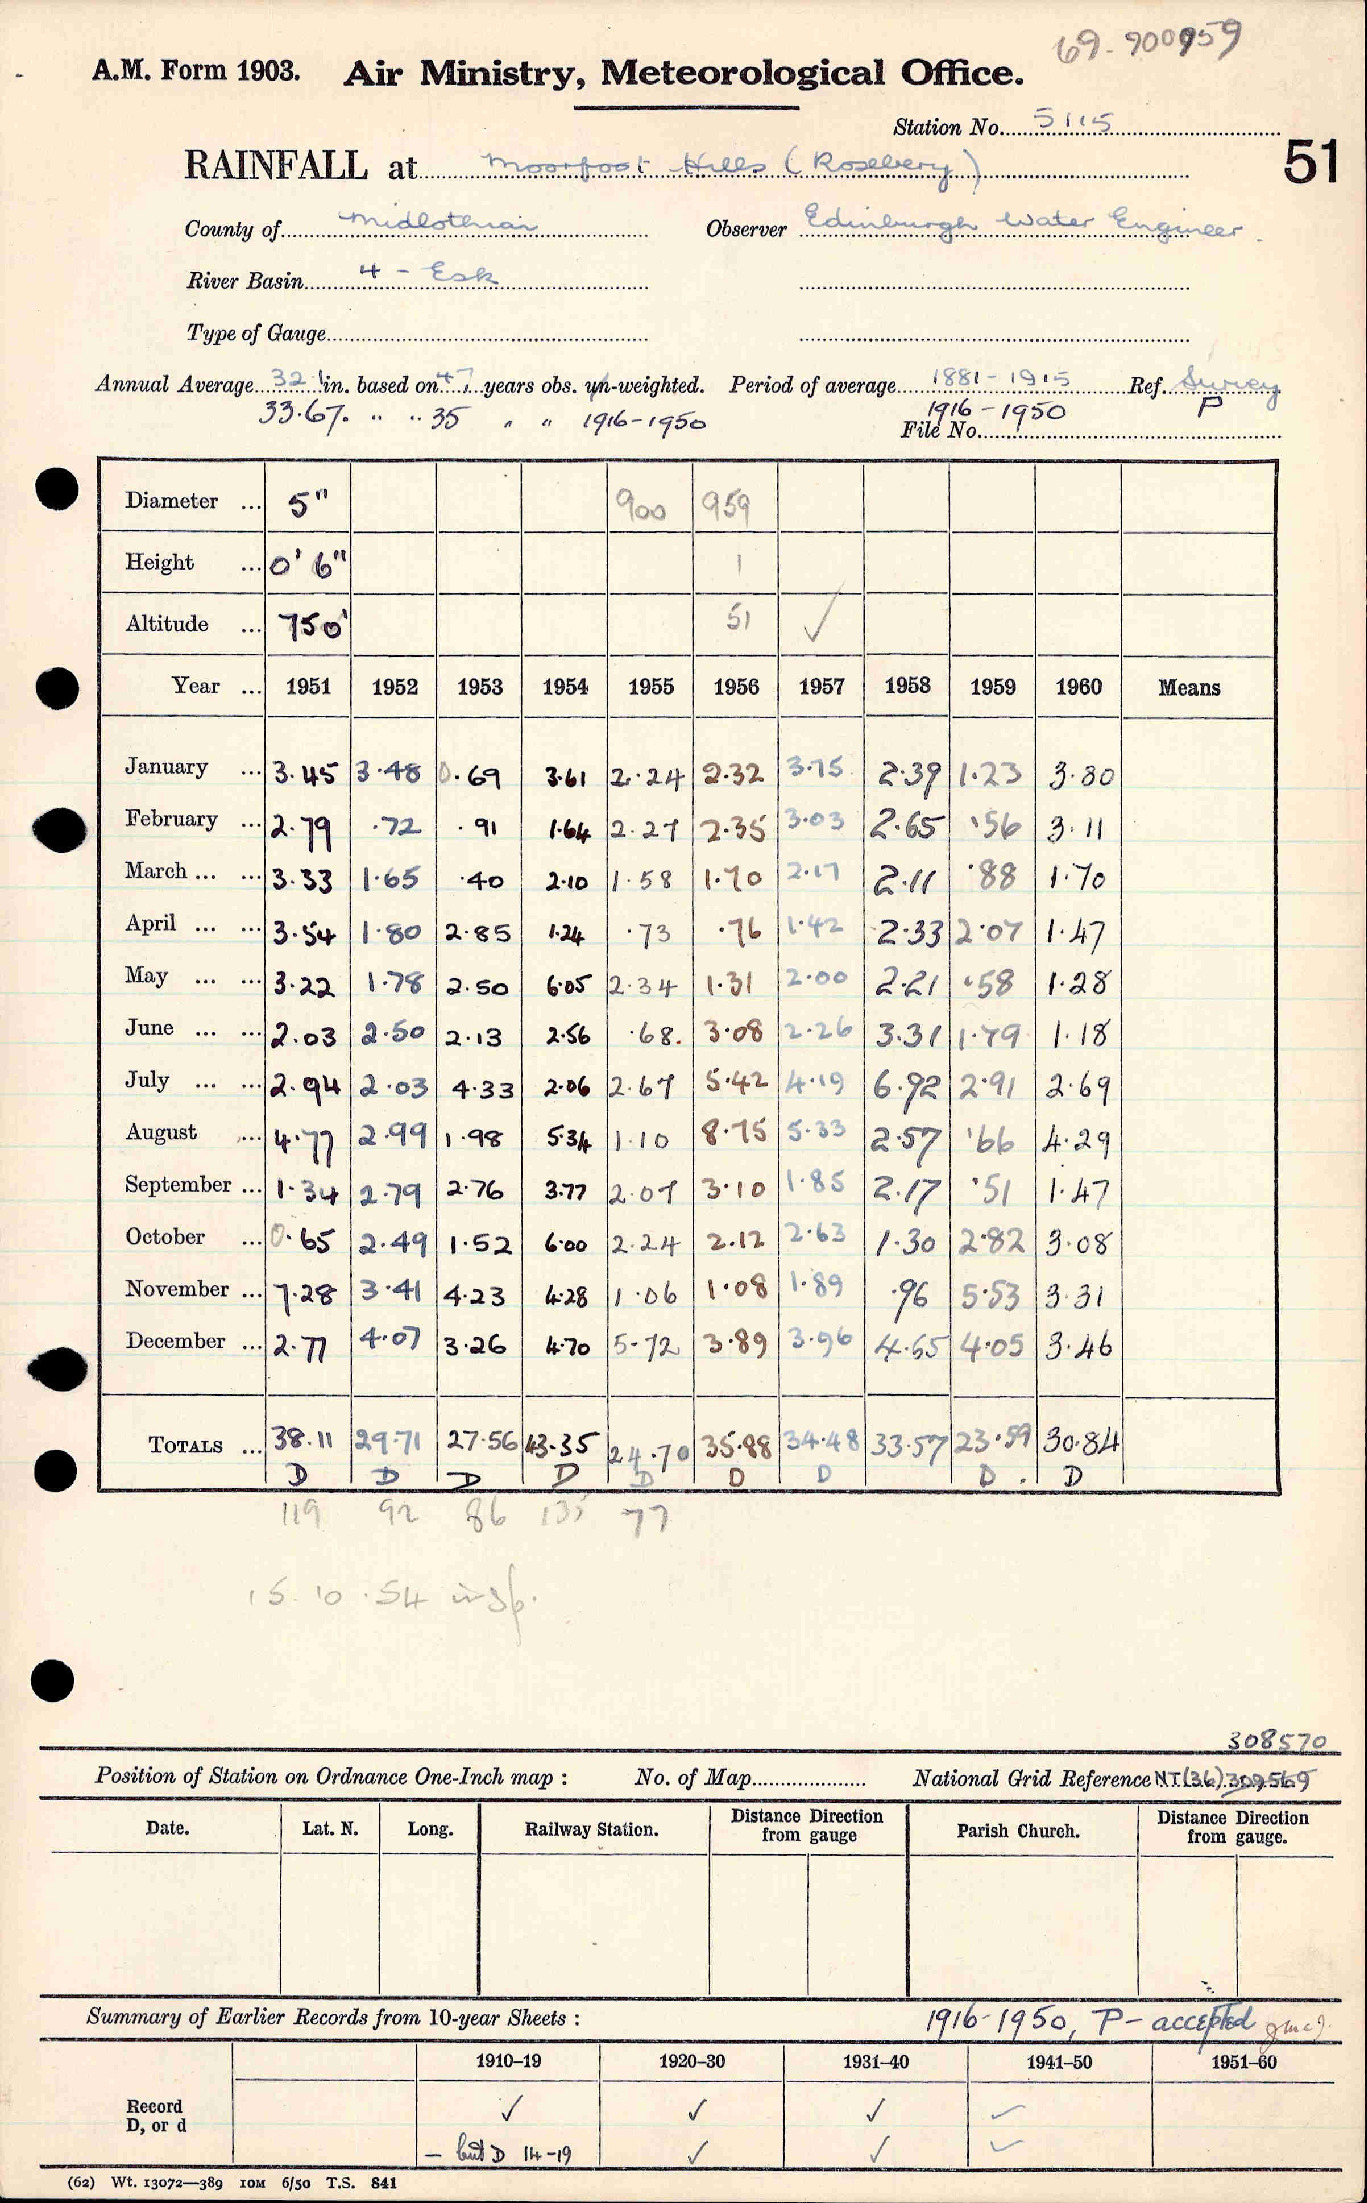 69-900959
A.M. Form 1903. Air Ministry, Meteorological Office.
Station No. 5115
51
RAINFALL at Moorfoot Hills (Rosebery)
County of Midlothian Observer Edinburgh Water Engineer.
River Basin 4 - Esk
Type of Gauge
Annual Average 32.1 in. based on 47 years obs. un-weighted. Period of average 1881-1915 Ref. Survey
33.67. " " 35 " " 1916-1950 1916-1950 P
File No.
Diameter ... 5" 900 959
Height ... 0' 6" 1
Altitude ... 750' 51 ✓
Year ... 1951 1952 1953 1954 1955 1956 1957 1958 1959 1960 Means
January ... 3.45 3.48 0.69 3.61 2.24 2.32 3.75 2.39 1.23 3.80
February ... 2.79 .72 .91 1.64 2.27 2.35 3.03 2.65 .56 3.11
March ... ... 3.33 1.65 .40 2.10 1.58 1.70 2.17 2.11 .88 1.70
April ... ... 3.54 1.80 2.85 1.24 .73 .76 1.42 2.33 2.07 1.47
May ... ... 3.22 1.78 2.50 6.05 2.34 1.31 2.00 2.21 .58 1.28
June ... ... 2.03 2.50 2.13 2.56 .68. 3.08 2.26 3.31 1.79 1.18
July ... ... 2.94 2.03 4.33 2.06 2.67 5.42 4.19 6.92 2.91 2.69
August ... 4.77 2.99 1.98 5.34 1.10 8.75 5.33 2.57 .66 4.29
September ... 1.34 2.79 2.76 3.77 2.07 3.10 1.85 2.17 .51 1.47
October ... 0.65 2.49 1.52 6.00 2.24 2.12 2.63 1.30 2.82 3.08
November ... 7.28 3.41 4.23 4.28 1.06 1.08 1.89 .96 5.53 3.31
December ... 2.77 4.07 3.26 4.70 5.72 3.89 3.96 4.65 4.05 3.46
TOTALS ... 38.11 29.71 27.56 43.35 24.70 35.88 34.48 33.57 23.59 30.84
D D D D D D D D . D
119 92 86 135 77
15.10.54 insp.
308570
Position of Station on Ordnance One-Inch map : No. of Map National Grid Reference NT(36) 309569
Date. Lat. N. Long. Railway Station. Distance Direction from gauge Parish Church. Distance Direction from gauge.
Summary of Earlier Records from 10-year Sheets : 1916-1950, P- accepted
1910–19 1920–30 1931–40 1941–50 1951–60
Record ✓ ✓ ✓ ✓
D, or d
– but D 14-19 ✓ ✓ ✓
(62) Wt. 13072—389 10M 6/50 T.S. 841